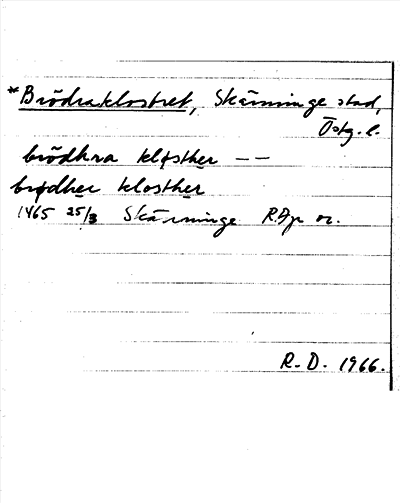 *Brödraklostret, Skänninge stad,
Östg. l.
brödhra kløsther — —
brødher klosther
1465 25/3 Skänninge RAp or.
R. D. 1966.